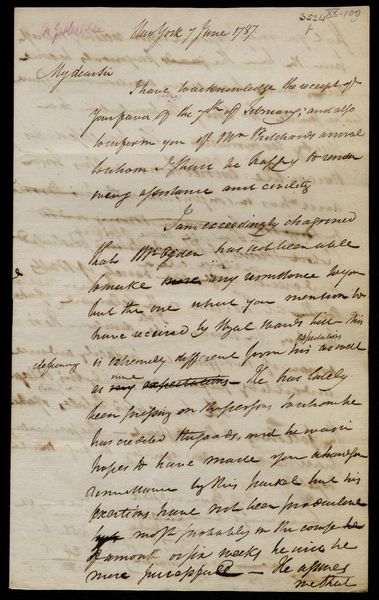 New York 7 June 1787.
My dear Sir
I have to acknowledge the receipt of
Your favor of the 7th of February; and also
to inform you of Mr Pritchards arrival
to whom I shall be happy to render
every assistance and civility
I am exceedingly chagrined
that Mr Ogden has not been able
to make more any remittance to you
but the one which you mention to
have received by Royal bill – This
is extremely different from his expectations as well
as my mine expectations – He has lately
been pressing on the persons to whom he
has credited the goods, and he was in
hopes to have made you a handsome
remittance by this packet but his
exertions have not been productive
most probably in the course
of a month or six weeks he will be
more successful – He assures
me that